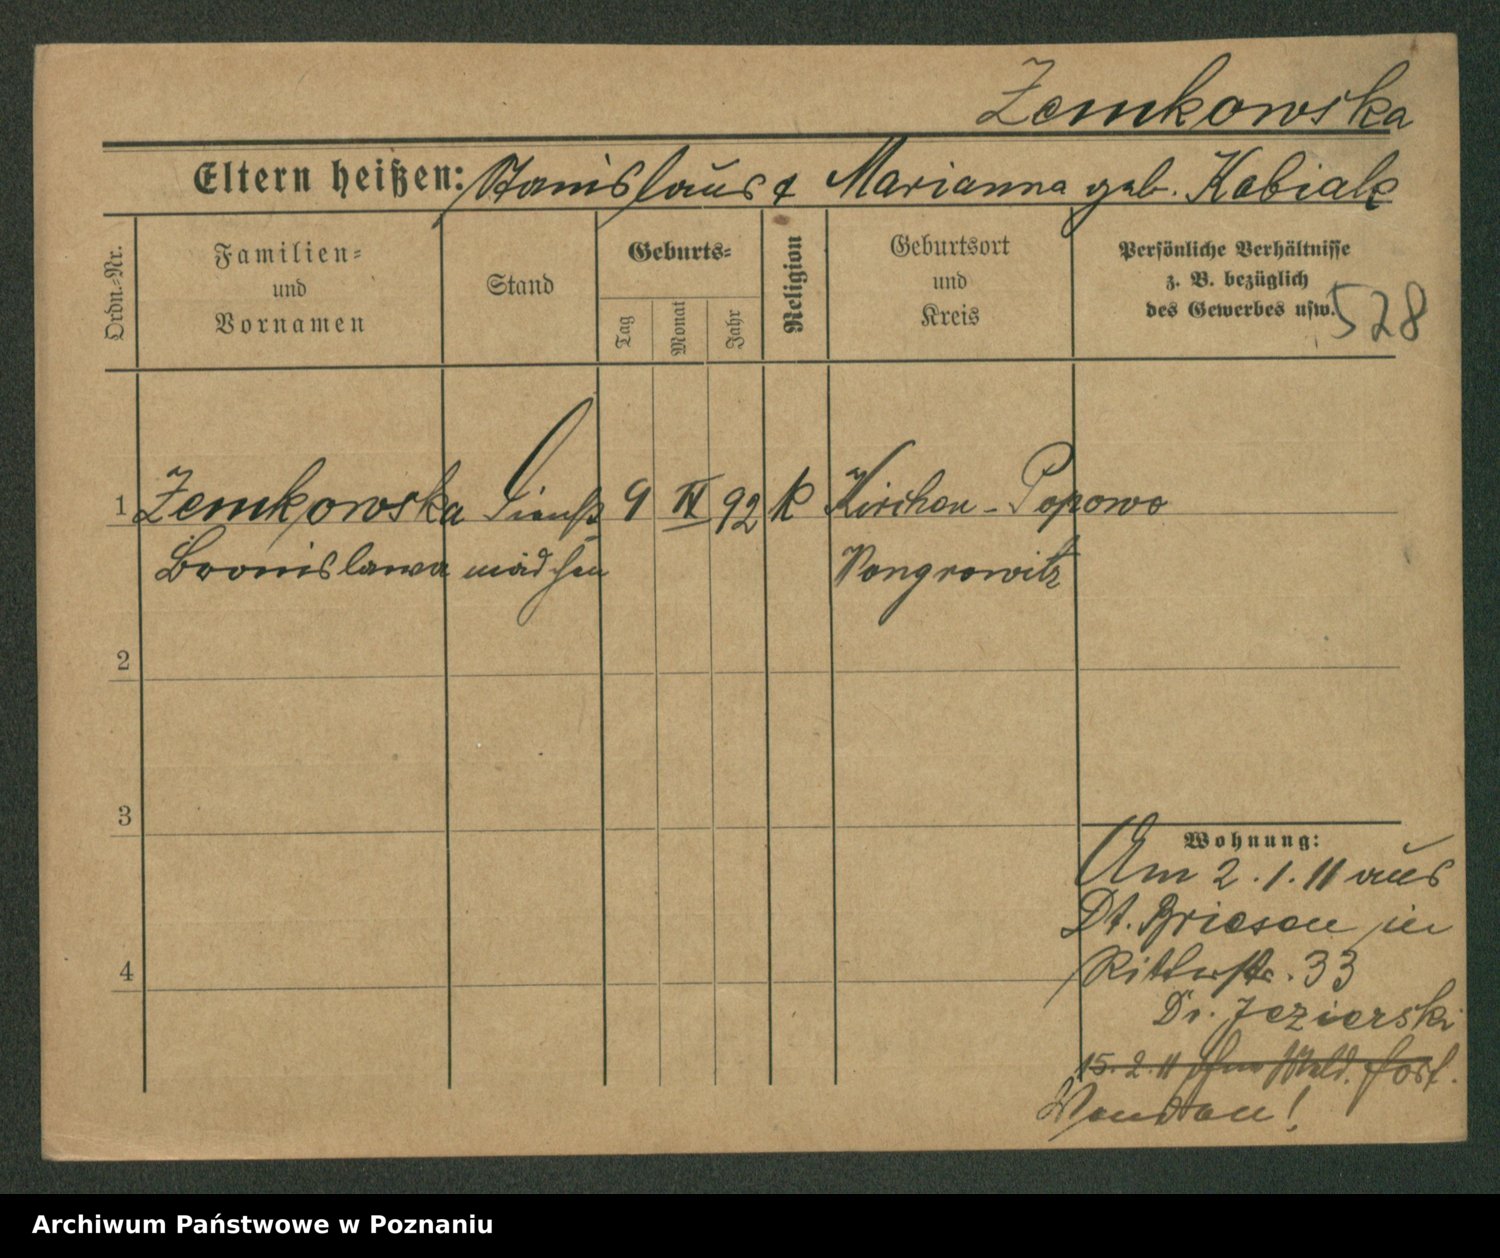 Zemkowska
Eltern heißen: Stanislaus & Marianna geb. Kabialk
Ordn.-Nr.
Familien-
und
Vornamen
Stand
Geburts-
Tag
Monat
Jahr
Religion
Geburtsort
und
Kreis
Persönliche Verhältnisse
z. B. bezüglich
des Gewerbes usw.
528
1 Zemkowska Dienst 9 IV 92 k Kirchen-Popowo
Bronislawa mädchen Wongrowitz
2
3
4
Wohnung:
Am 2.1.11 aus
Dt. Briesen in
Ritterstr. 33
Dr. Jezierski
15.2.11 ohne Meld. fort.
Archiwum Państwowe w Poznaniu